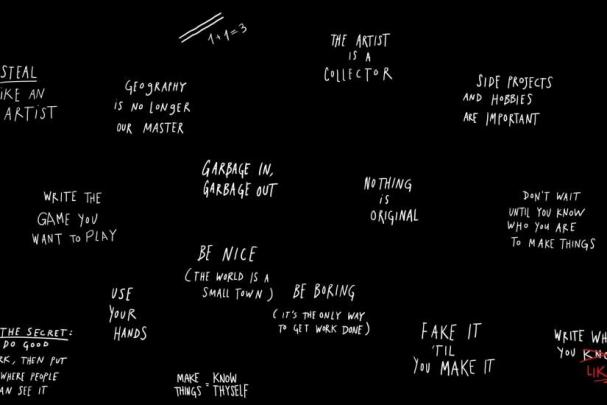 1+1=3
THE ARTIST
IS A
COLLECTOR
STEAL
IKE AN
ARTIST
GEOGRAPHY
IS NO LONGER
OUR MASTER
SIDE PROJECTS
AND HOBBIES
ARE IMPORTANT
GARBAGE IN,
GARBAGE OUT
NOTHING
iS
ORIGINAL
WRITE THE
GAME YOU
WANT TO PLAY
DON'T WAIT
UNTIL YOU KNOW
WHO YOU ARE
TO MAKE THINGS
BE NICE
(THE WORLD IS A
SMALL TOWN)
BE BORING
(IT'S THE ONLY WAY
TO GET WORK DONE)
USE
YOUR
HANDS
THE SECRET:
DO GOOD
RK, THEN PUT
WHERE PEOPLE
AN SEE IT
FAKE IT
'TIL
YOU MAKE IT
WRITE WH
YOU KNO
LIK
MAKE = KNOW
THINGS THYSELF